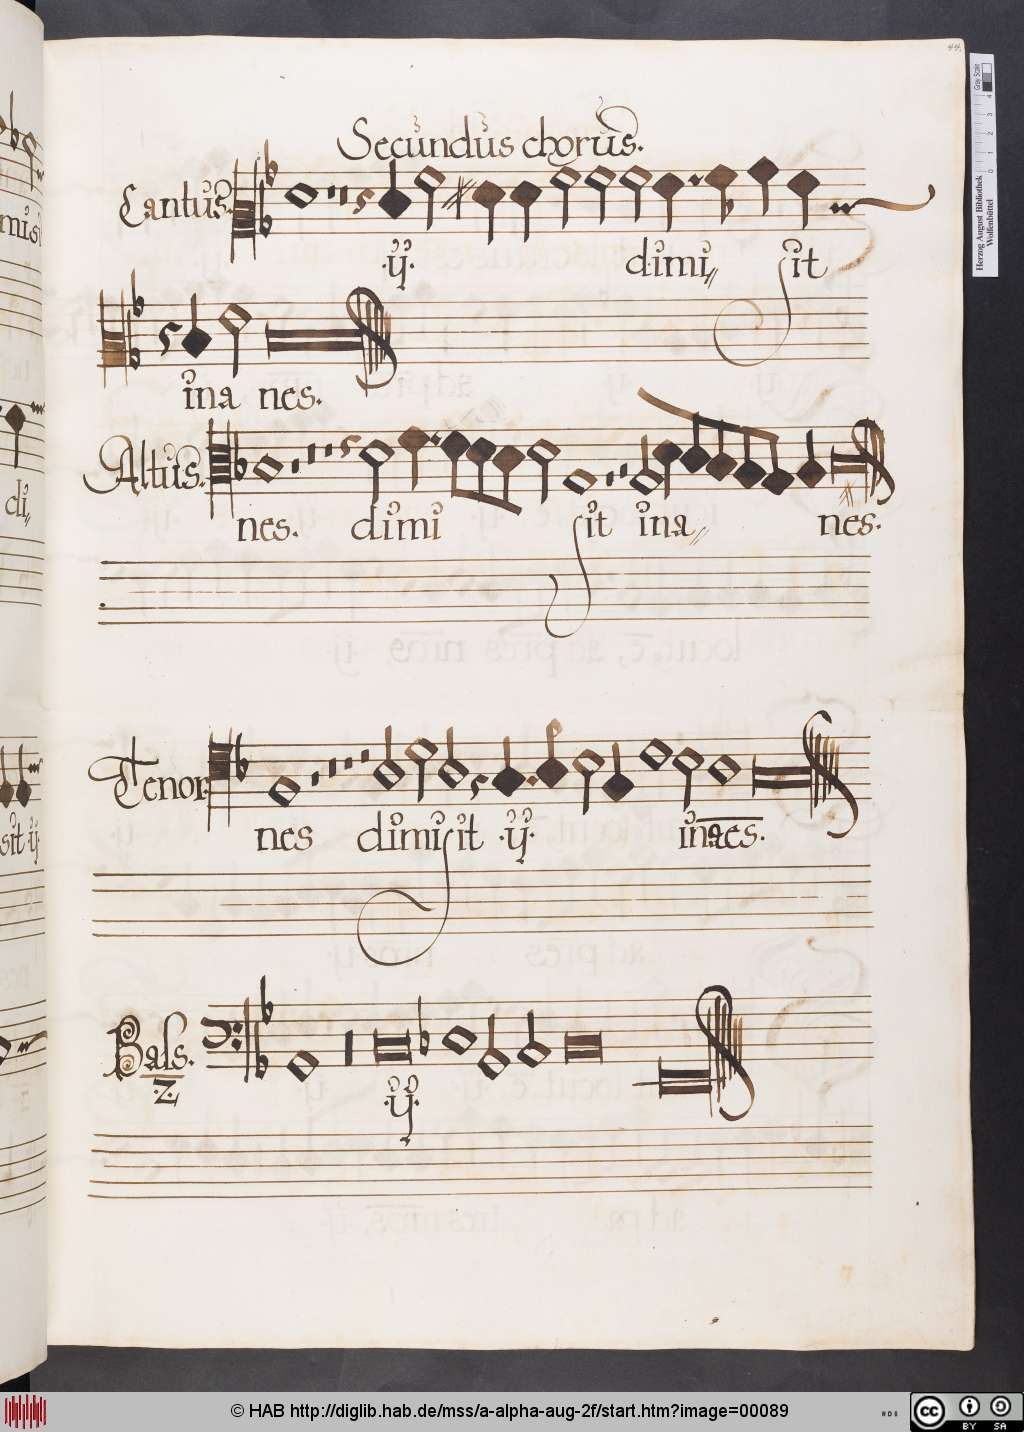 44.
Secundus chorus.
Cantus.
.ij. dimi// sit
ina nes.
Altus.
nes. dimi sit ina// nes.
Tenor.
nes dimisit .ij. inaes.
Bass.
.2.
.ij.
misi
di//
sit ij
Gray Scale
Herzog August Bibliothek
Wolfenbüttel
0 1 2 3 4
© HAB http://diglib.hab.de/mss/a-alpha-aug-2f/start.htm?image=00089
cc BY SA